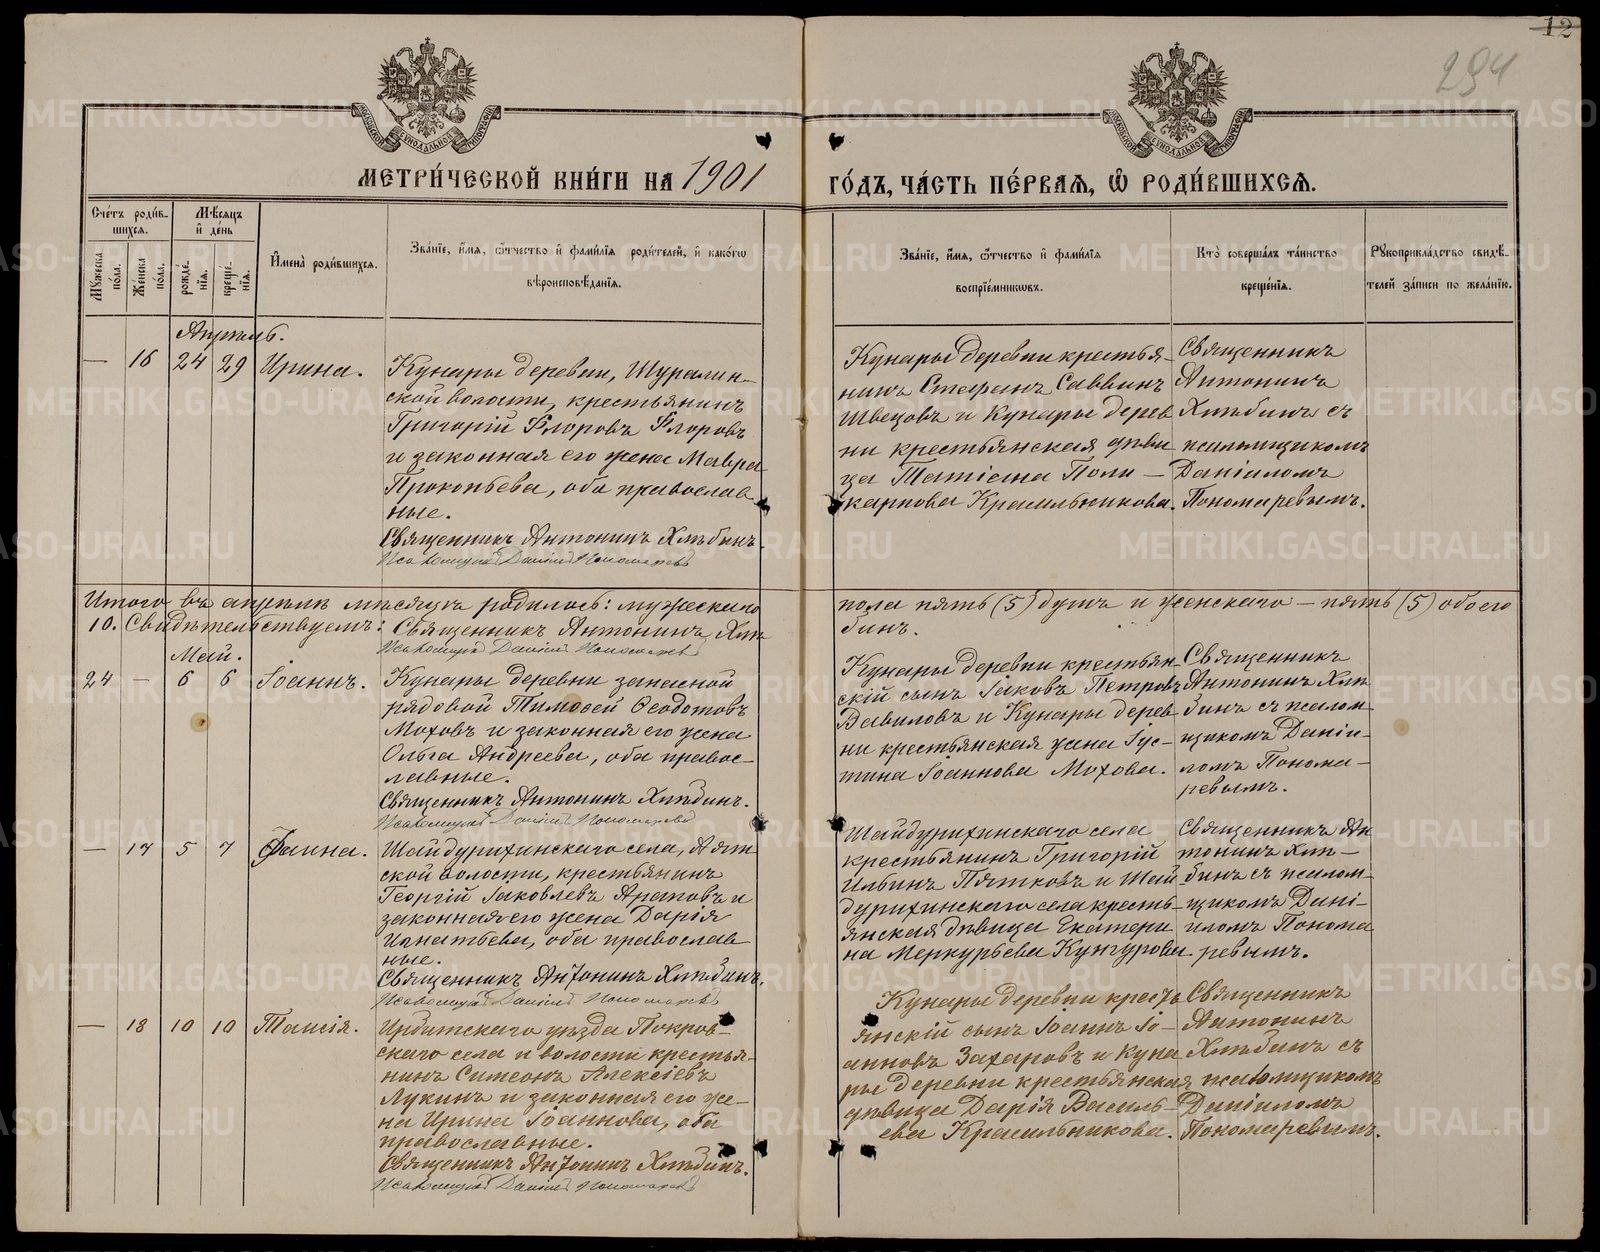 12
294
МЕТРИ́ЧЕСКОЙ КНИ́ГИ НА 1901
ГО́ДЪ, ЧА́СТЬ ПЕ́РВАЯ, Ѽ РОДИ́ВШИХСЯ.
Сче́тъ роди́в-
шихся.
Му́жеска по́ла.
Же́нска по́ла.
Мѣ́сяцъ
и де́нь
рожде́нїя.
креще́нїя.
И҆мена̀ роди́вшихся.
Зва́нїе, и҆́мя, ѻ҆́тчество и҆ фами́лїя роди́телей, и҆ како́гѡ
вѣроисповѣ́данїя.
Зва́нїе, и҆́мя, ѻ҆́тчество и҆ фами́лїя
воспрїе́мниковъ.
Кто̀ соверша́лъ та́инство
креще́нїя.
Рукоприкла́дство свидѣ́-
телей за́писи по жела́нїю.
Апрѣль.
— 16 24 29 Ирина.
Кунары деревни, Шуралин-
ской волости, крестьянинъ
Григорій Флоровъ Флоровъ
и законная его жена Мавра
Прокопьева, оба православ
ные.
Священникъ Антонинъ Хлѣбинъ.
Псаломщикъ Даніилъ Пономаревъ
Кунары деревни крестья-
нинъ Стефанъ Саввинъ
Швецовъ и Кунары дерев
ни крестьянская дѣви
ца Татіана Поли-
карпова Красильникова.
Священникъ
Антонинъ
Хлѣбинъ съ
псаломщикомъ
Даніиломъ
Пономаревымъ.
Итого въ апрѣлѣ мѣсяцѣ родилось: мужескаго
пола пять (5) душъ и женскаго – пять (5) обоего
10. Свидѣтельствуемъ: Священникъ Антонинъ Хлѣ
бинъ.
Псаломщикъ Даніилъ Пономаревъ
Май.
24 — 6 6 Іоаннъ.
Кунары деревни запасной
рядовой Тимоѳей Ѳеодотовъ
Моховъ и законная его жена
Ольга Андреева, оба правос-
лавные.
Священникъ Антонинъ Хлѣбинъ.
Псаломщикъ Даніилъ Пономаревъ
Кунары деревни крестьян-
скій сынъ Іаковъ Петровъ
Вавиловъ и Кунары дерев
ни крестьянская жена Іус-
тина Іоаннова Мохова.
Священникъ
Антонинъ Хлѣ
бинъ съ псалом-
щикомъ Даніи-
ломъ Понома-
ревымъ.
— 17 5 7 Фаина.
Шайдурихинскаго села, Аят
ской волости, крестьянинъ
Георгій Іаковлевъ Арапов и
законная его жена Дарія
Игнатьева, оба православ
ные.
Священникъ Антонинъ Хлѣбинъ.
Псаломщикъ Даніилъ Пономаревъ
Шайдурихинскаго села
крестьянинъ Григорій
Ильинъ Пятковъ и Шай
дурихинскаго села кресть-
янская дѣвица Екатери
на Меркурьева Кунгурова
Священникъ Ан
тонинъ Хлѣ-
бинъ съ псалом-
щикомъ Дані-
иломъ Понома
ревымъ.
— 18 10 10 Таисія.
Ирбитскаго уѣзда Покров-
скаго села и волости крестья-
нинъ Симеонъ Алексіевъ
Лукинъ и законная его же-
на Ирина Іоаннова, оба
православные.
Священникъ Антонинъ Хлѣбинъ.
Псаломщикъ Даніилъ Пономаревъ
Кунары деревни кресть
янскій сынъ Іоаннъ Іо-
анновъ Захаровъ и Куна
ры деревни крестьянская
дѣвица Дарія Василь-
ева Красильникова.
Священникъ
Антонинъ
Хлѣбинъ съ
псаломщикомъ
Даніиломъ
Пономаревымъ.
METRIKI.GASO-URAL.RU